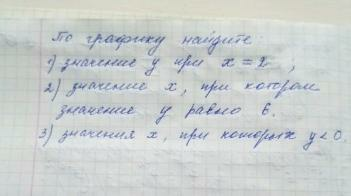 По графику найдите:
1) значение y при x = 2 ;
2) значение x, при котором
значение y равно 6.
3) значения x, при которых y < 0.